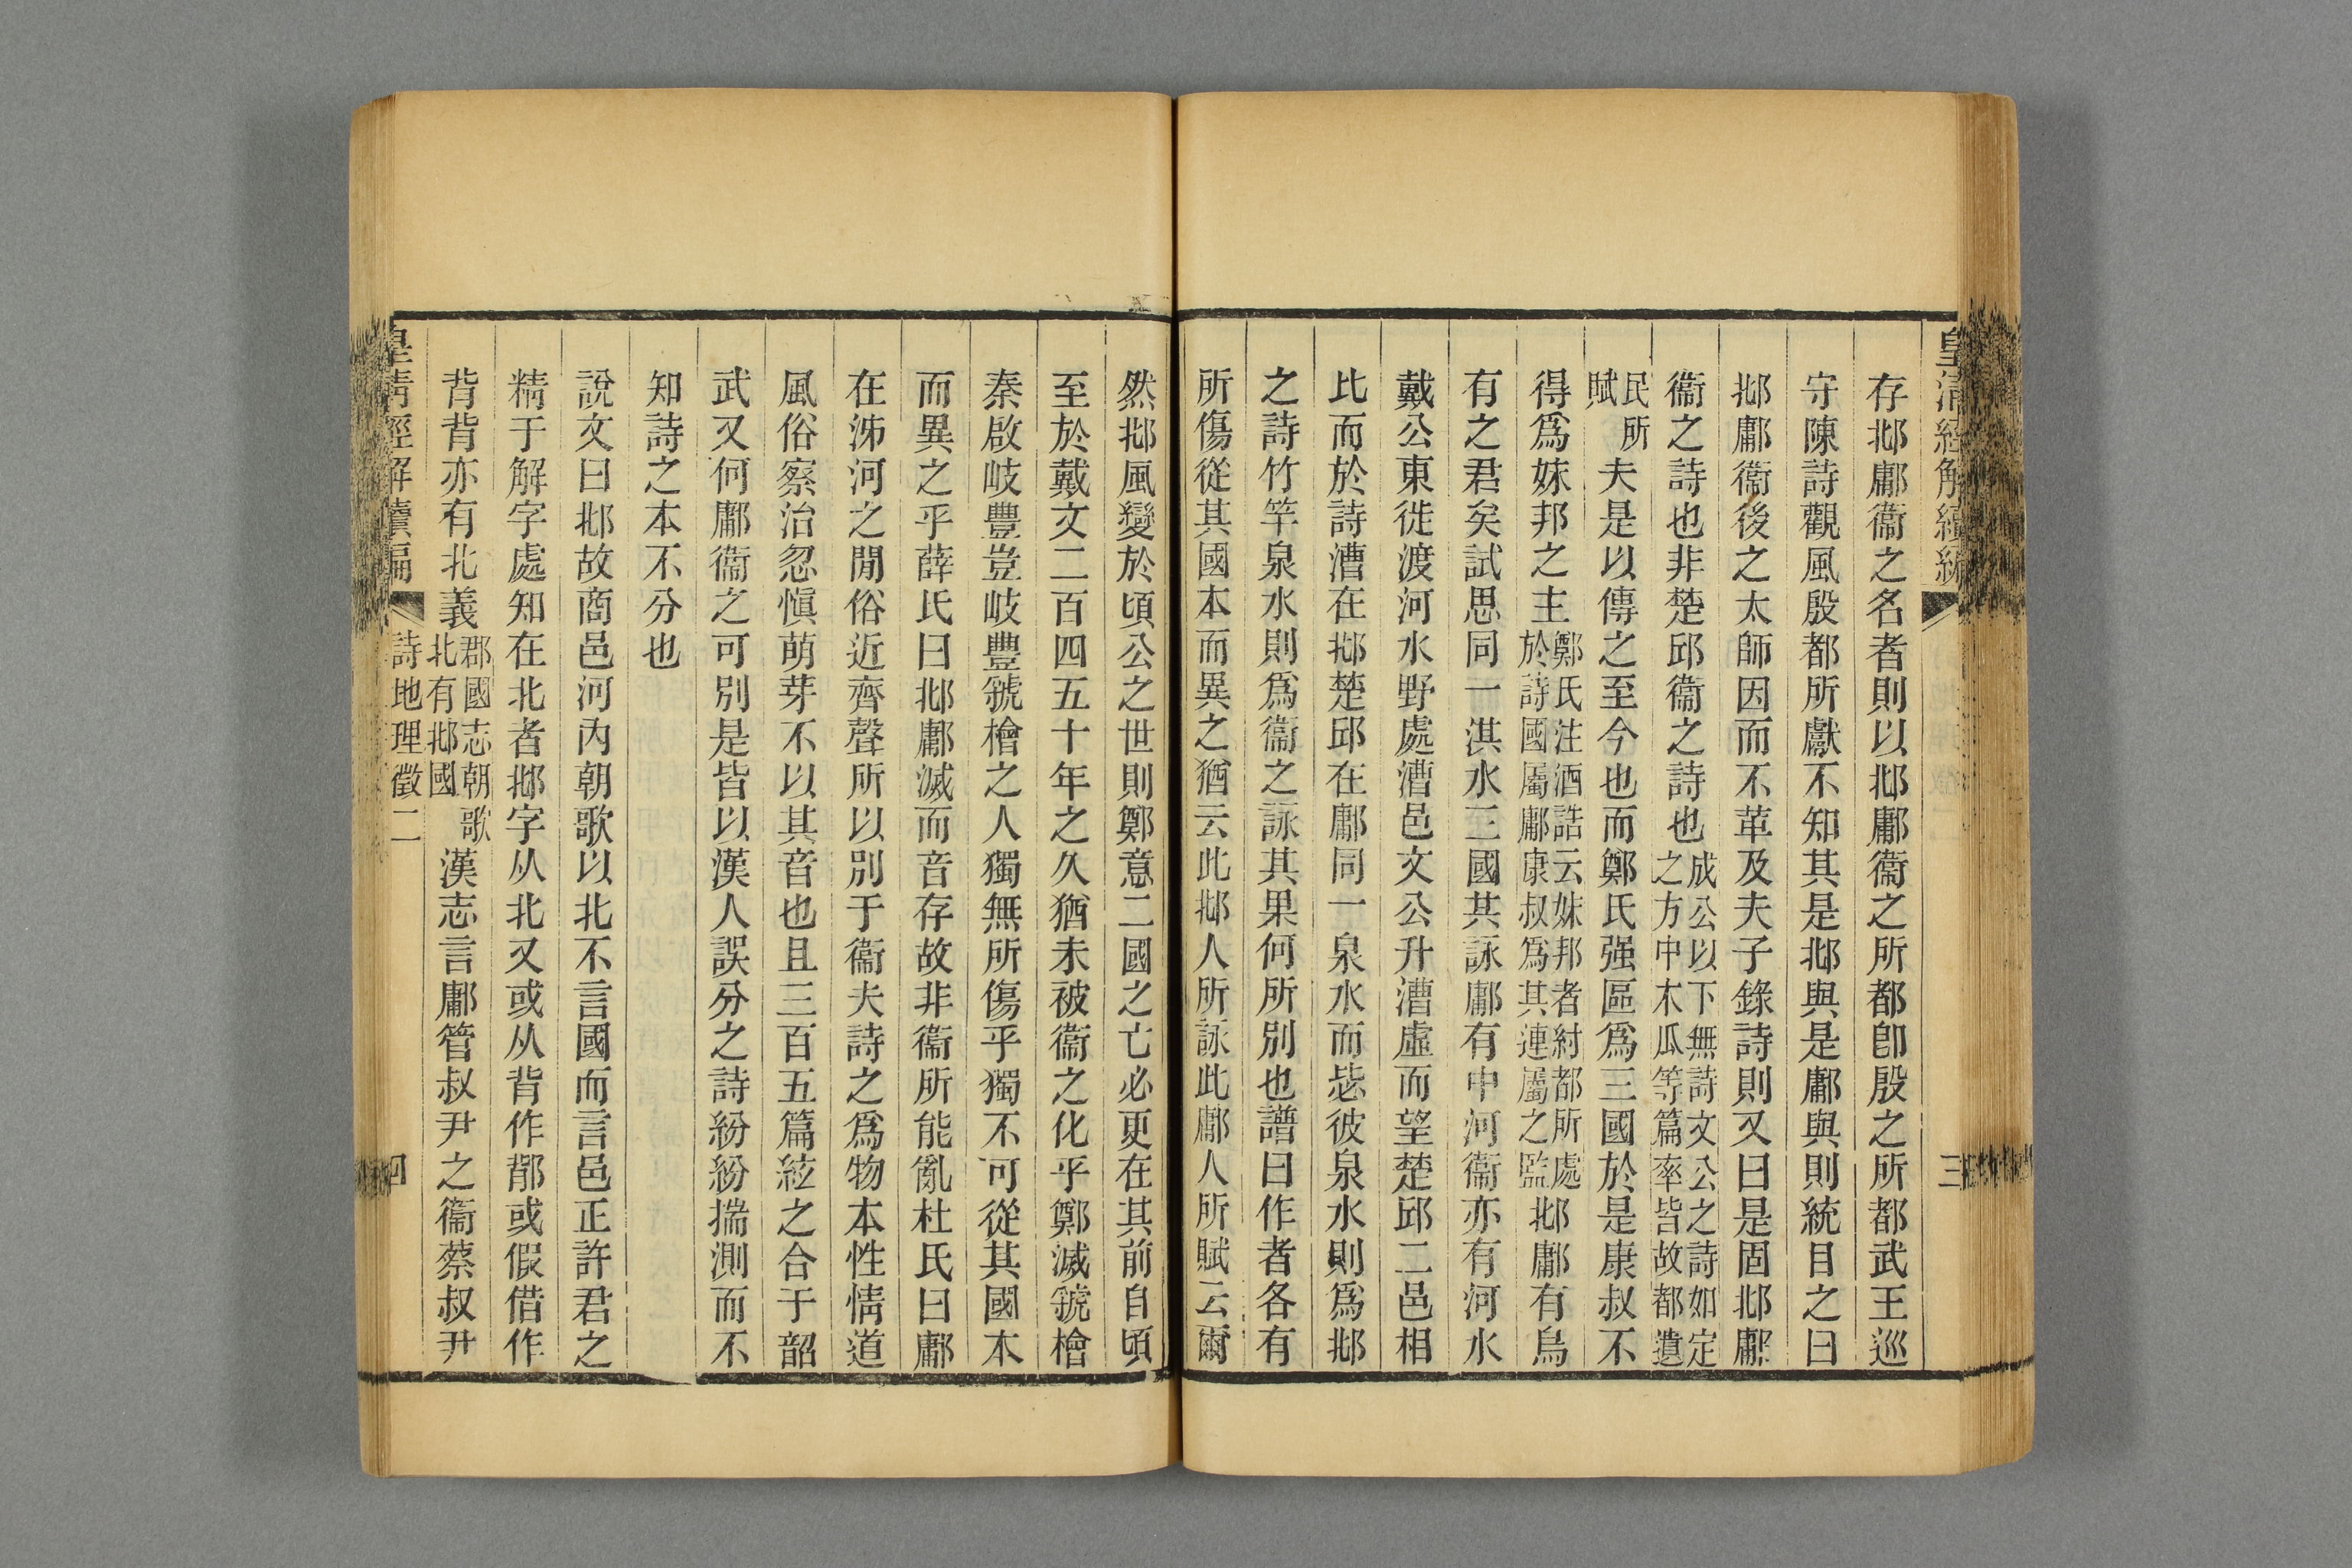 皇清經解續編
三
存邶鄘衞之名者則以邶鄘衞之所都卽殷之所都武王巡
守陳詩觀風殷都所獻不知其是邶與是鄘與則統目之曰
邶鄘衞後之太師因而不革及夫子錄詩則又曰是固邶鄘
衞之詩也非楚邱衞之詩也成公以下無詩文公之詩如定
之方中木瓜等篇率皆故都遺
民所
賦
夫是以傳之至今也而鄭氏强區爲三國於是康叔不
得爲妹邦之主鄭氏注酒誥云妹邦者紂都所處
於詩國屬鄘康叔爲其連屬之監
邶鄘有烏
有之君矣試思同一淇水三國其詠鄘有中河衞亦有河水
戴公東徙渡河水野處漕邑文公升漕虛而望楚邱二邑相
比而於詩漕在邶楚邱在鄘同一泉水而毖彼泉水則爲邶
之詩竹竿泉水則爲衞之詠其果何所別也譜曰作者各有
所傷從其國本而異之猶云此邶人所詠此鄘人所賦云爾
然邶風變於頃公之世則鄭意二國之亡必更在其前自頃
至於戴文二百四五十年之久猶未被衞之化乎鄭滅虢檜
秦啟岐豐豈岐豐虢檜之人獨無所傷乎獨不可從其國本
而異之乎薛氏曰邶鄘滅而音存故非衞所能亂杜氏曰鄘
在泲河之閒俗近齊聲所以別于衞夫詩之爲物本性情道
風俗察治忽愼萌芽不以其音也且三百五篇絃之合于韶
武又何鄘衞之可別是皆以漢人誤分之詩紛紛揣測而不
知詩之本不分也
說文曰邶故商邑河內朝歌以北不言國而言邑正許君之
精于解字處知在北者邶字从北又或从背作鄁或假借作
背背亦有北義郡國志朝歌
北有邶國
漢志言鄘管叔尹之衞蔡叔尹
皇清經解續編
詩地理徵二
四